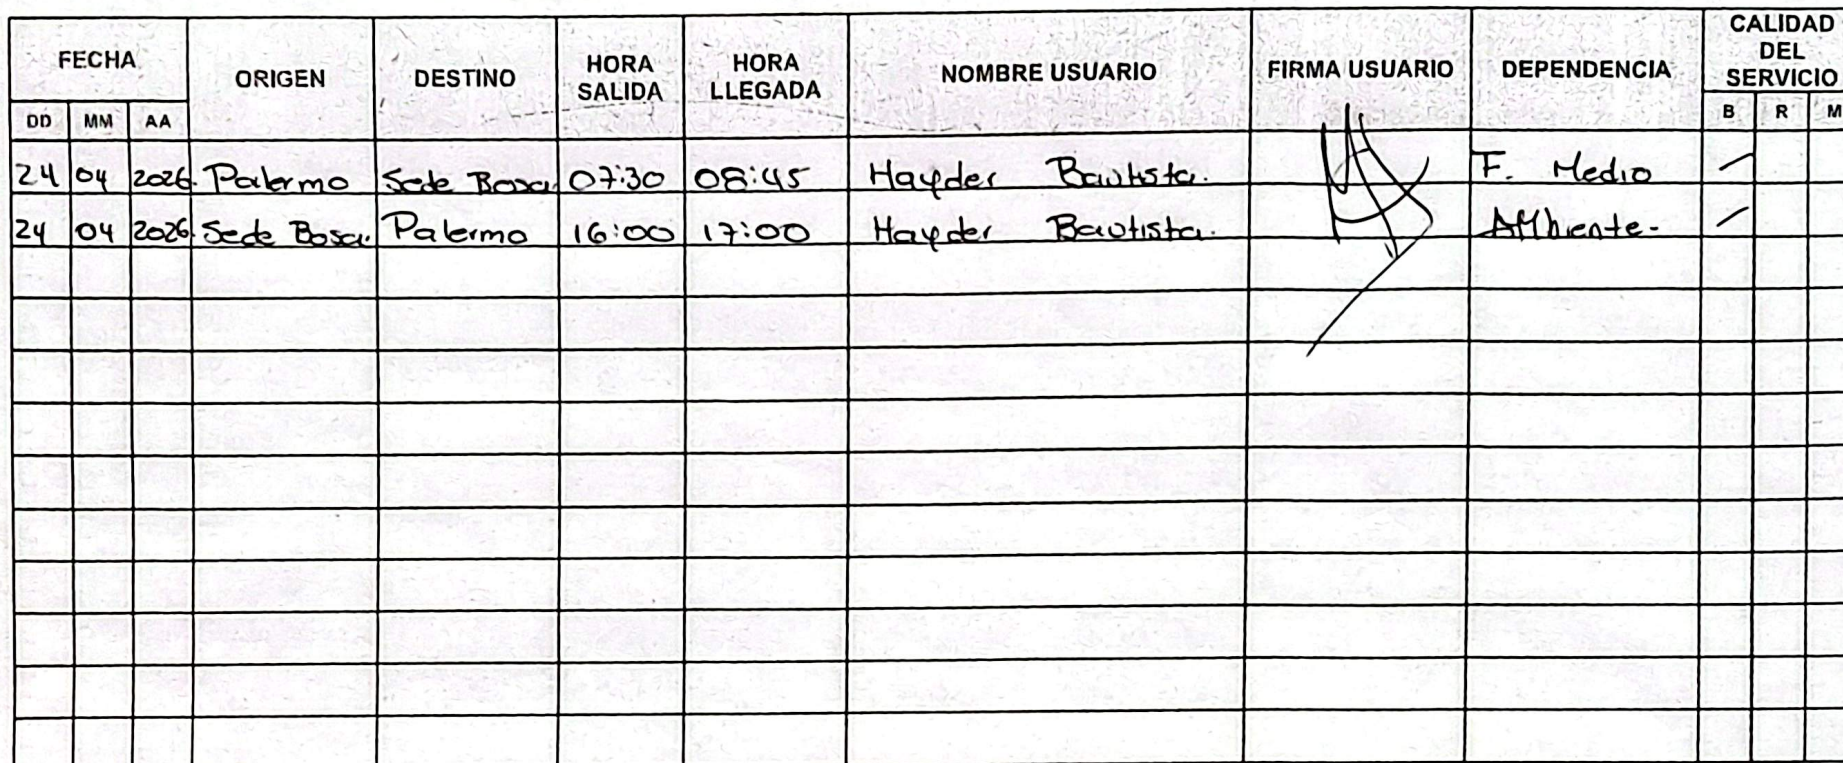 FECHA ORIGEN DESTINO HORA SALIDA HORA LLEGADA NOMBRE USUARIO FIRMA USUARIO DEPENDENCIA CALIDAD DEL SERVICIO
DD MM AA B R M
24 04 2026. Palermo Sede Bosa. 07:30 08:45 Hayder Bautista. F. Medio
24 04 2026. Sede Bosa. Palermo 16:00 17:00 Hayder Bautista. Ambiente.